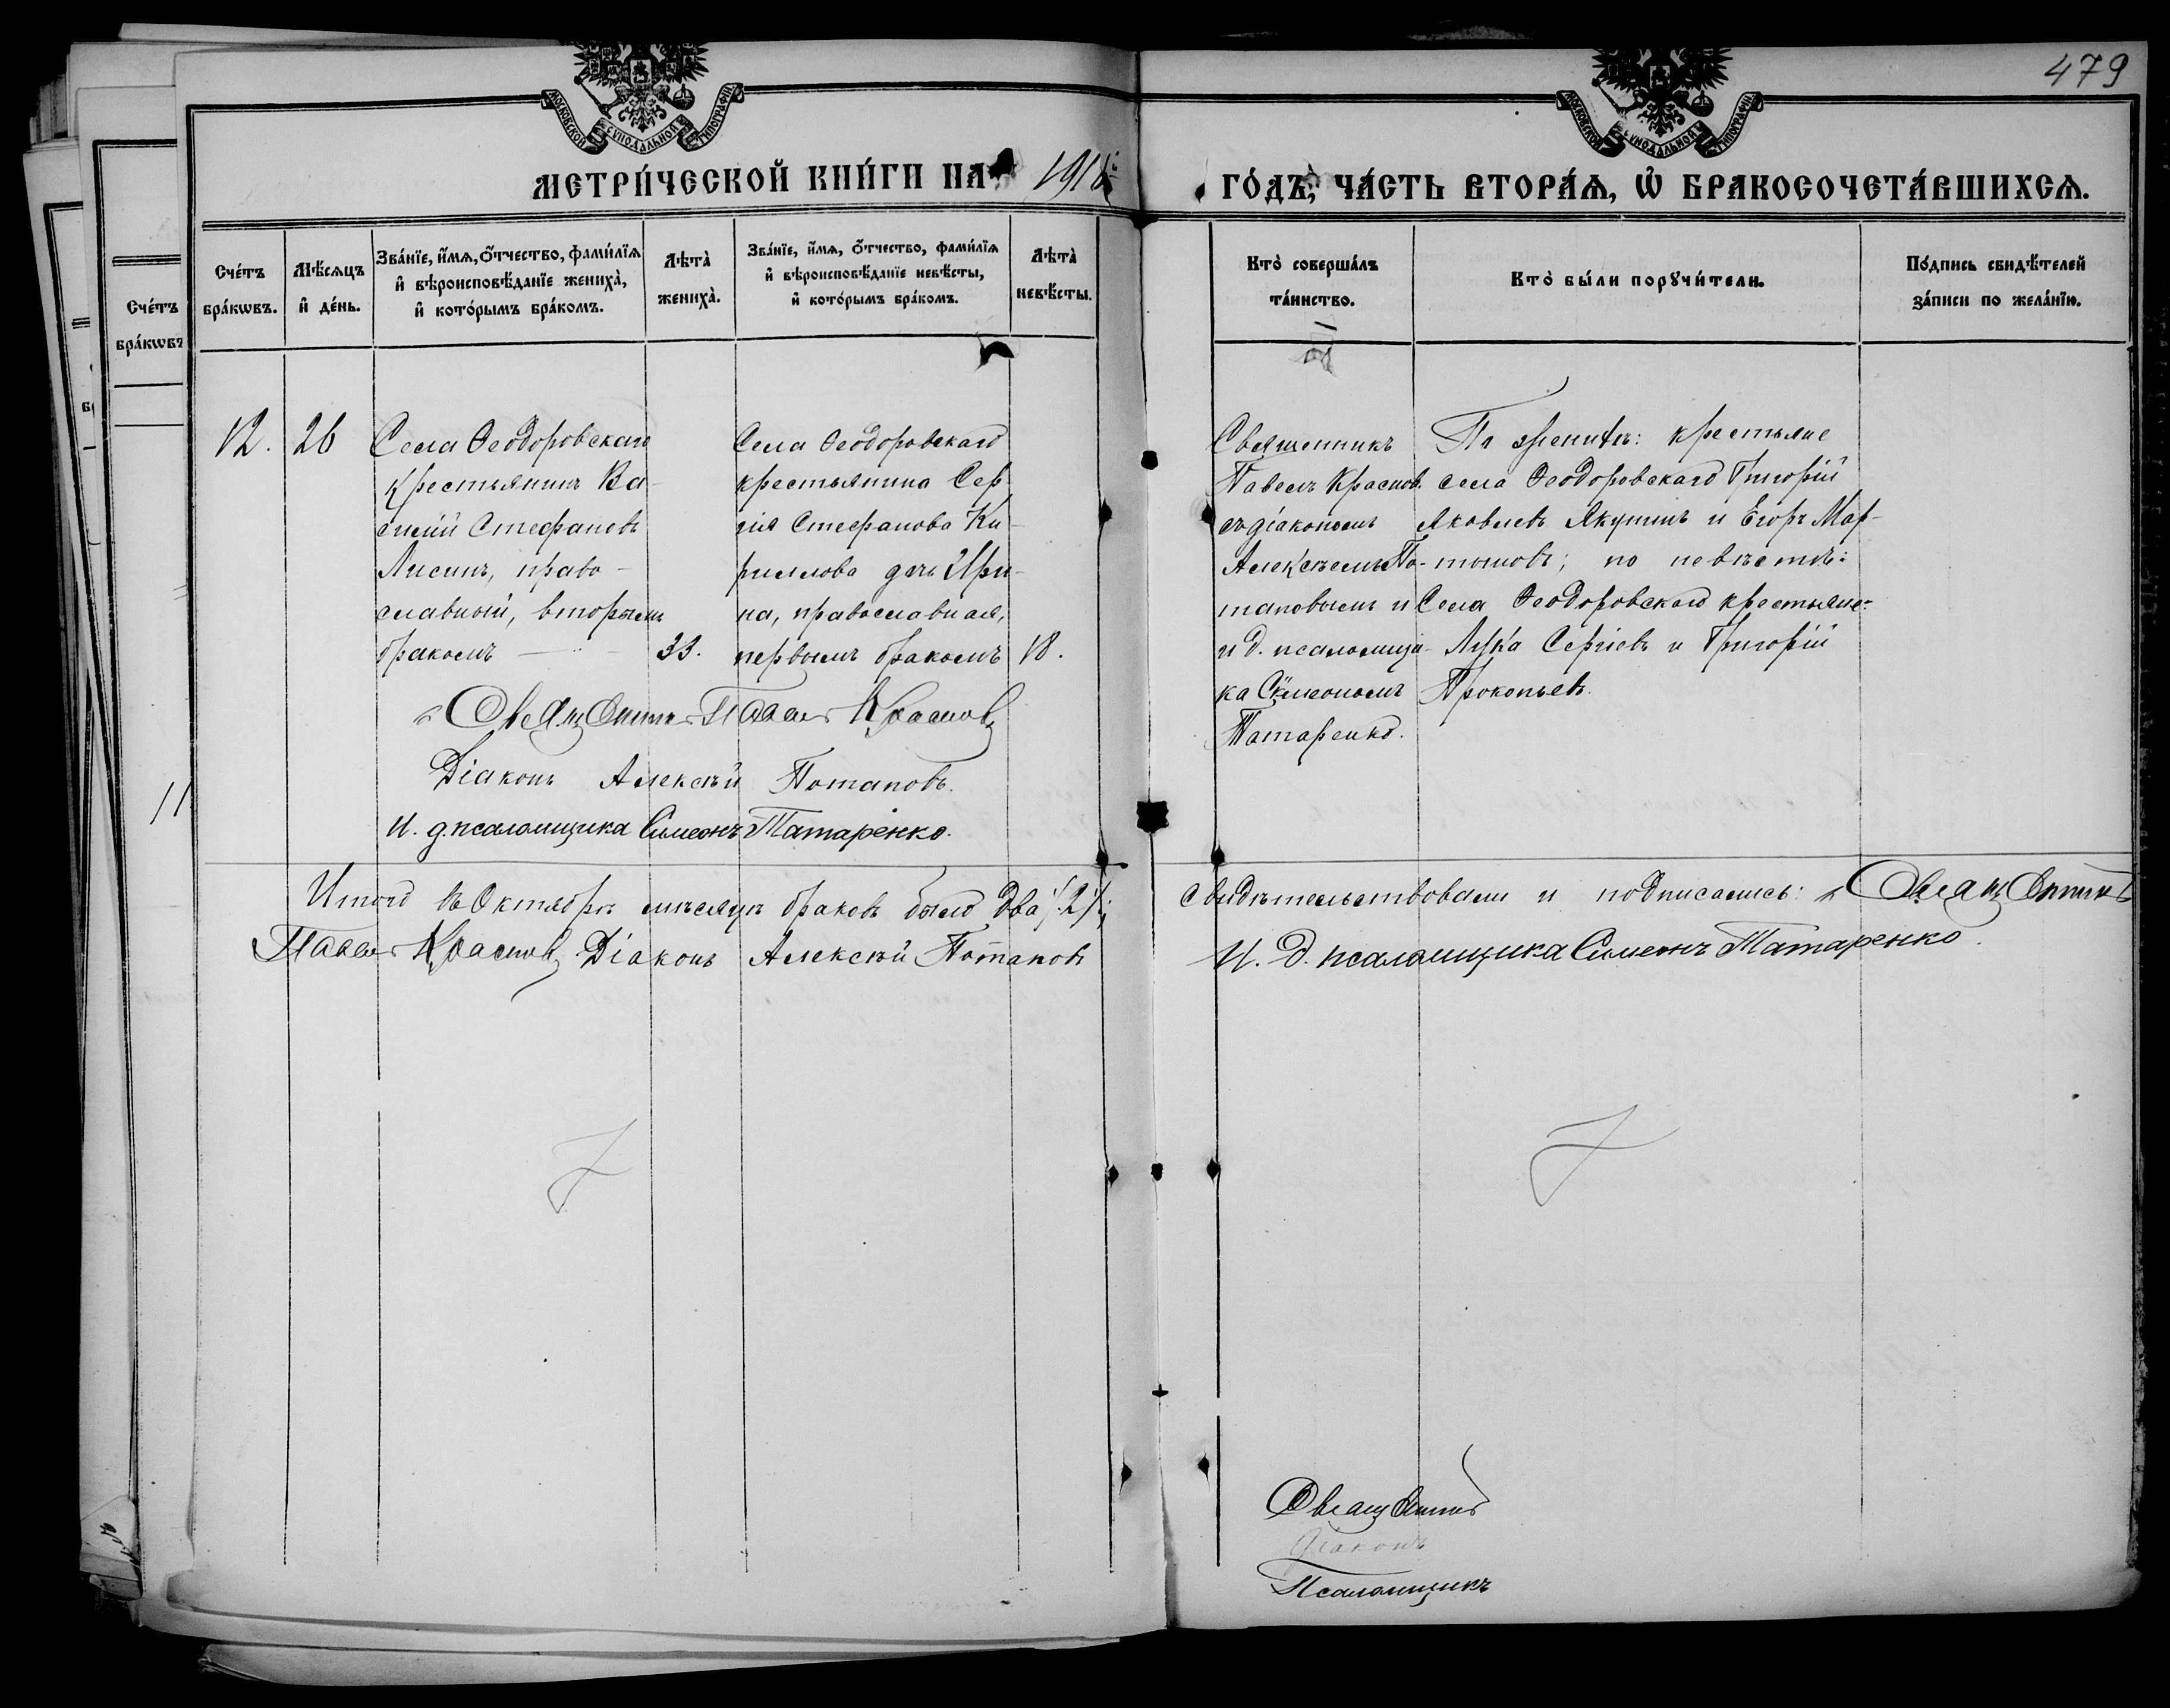 479
МОСКОВСКОЙ СѴНОДАЛЬНОЙ ТИПОГРАФІИ
МОСКОВСКОЙ СѴНОДАЛЬНОЙ ТИПОГРАФІИ
МЕТРИ́ЧЕСКОЙ КНИ́ГИ НА
ГО́ДЪ, ЧА́СТЬ ВТОРА́Ѧ, Ѡ҆ БРАКОСОЧЕТА́ВШИХСѦ.
Сче́тъ бра́кѡвъ.
Мѣ́сѧцъ и҆ де́нь.
Зва́нїе, и҆́мѧ, ѻ҆́тчество, фами́лїѧ и҆ вѣроисповѣ́данїе жениха̀, и҆ кото́рымъ бра́комъ.
Лѣта̀ жениха̀.
Зва́нїе, и҆́мѧ, ѻ҆́тчество, фами́лїѧ и҆ вѣроисповѣ́данїе невѣ́сты, и҆ кото́рымъ бра́комъ.
Лѣта̀ невѣ́сты.
Кто̀ соверша́лъ та́инство.
Кто̀ бы́ли порꙋчи́тели.
По́дпись свидѣ́телей за́писи по жела́нїю.
Сче́тъ
бра́кѡвъ
11
12.
26
Села Ѳеодоровскаго
крестьянинъ Ва-
силій Стефановъ
Лисинъ, право-
славный, вторымъ
бракомъ
33.
Села Ѳеодоровскаго
крестьянина Сер
гія Стефанова Ки-
риллова дочь Ири-
на, православная,
первымъ бракомъ
18.
Священникъ
Павелъ Красновъ
съ діакономъ
Алексѣемъ По-
таповымъ и
и д. псаломщи-
ка Симеономъ
Татаренко.
По женихѣ: крестьяне
села Ѳеодоровскаго Григорій
Яковлевъ Якунинъ и Егоръ Мар-
тыновъ; по невѣстѣ:
Села Ѳеодоровскаго крестьяне:
Лука Сергіевъ и Григорій
Прокопьевъ.
Священникъ Павелъ Красновъ
Діаконъ Алексѣй Потаповъ.
И. д. псаломщика Симеонъ Татаренко.
Итого въ Октябрѣ мѣсяцѣ браковъ было два /2/;
свидѣтельствовали и подписались: Священникъ
Павелъ Красновъ Діаконъ Алексѣй Потаповъ
И. д. псаломщика Симеонъ Татаренко.
Священникъ
Діаконъ
Псаломщикъ